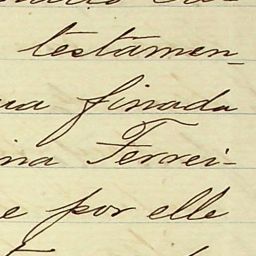 testamen_
ua finada
ina Ferrei-
e por elle